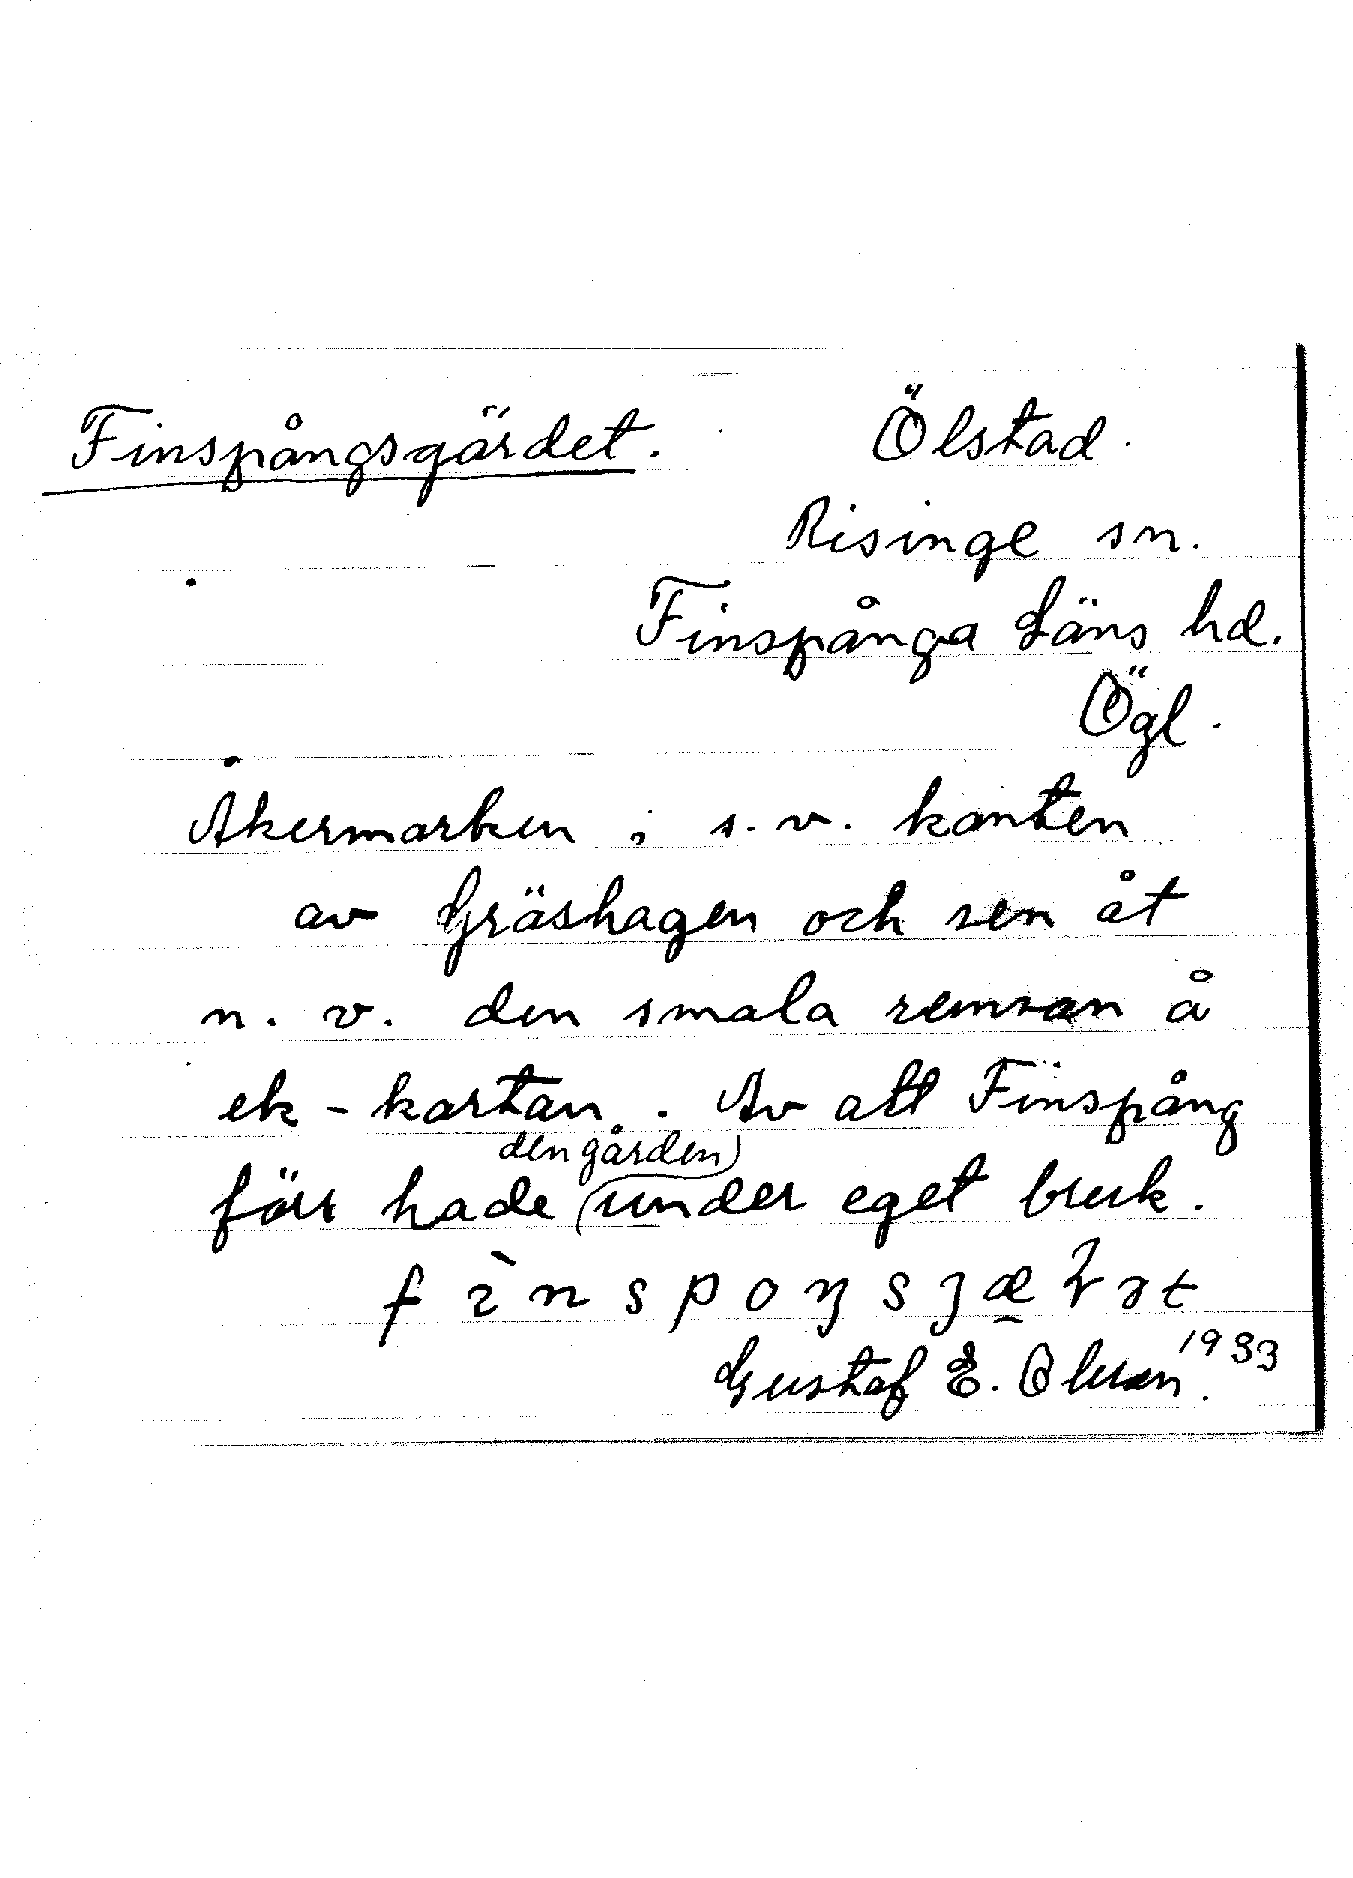 Finspångsgärdet. Ölstad.
Risinge sn.
Finspånga Läns hd.
Ögl.
Åkermarken i s.v. kanten
av Gräshagen och sen åt
n.v. den smala remsan å
ek-kartan. Av att Finspång
den gården
förr hade under eget bruk.
Gustaf E. Olsson. 1933